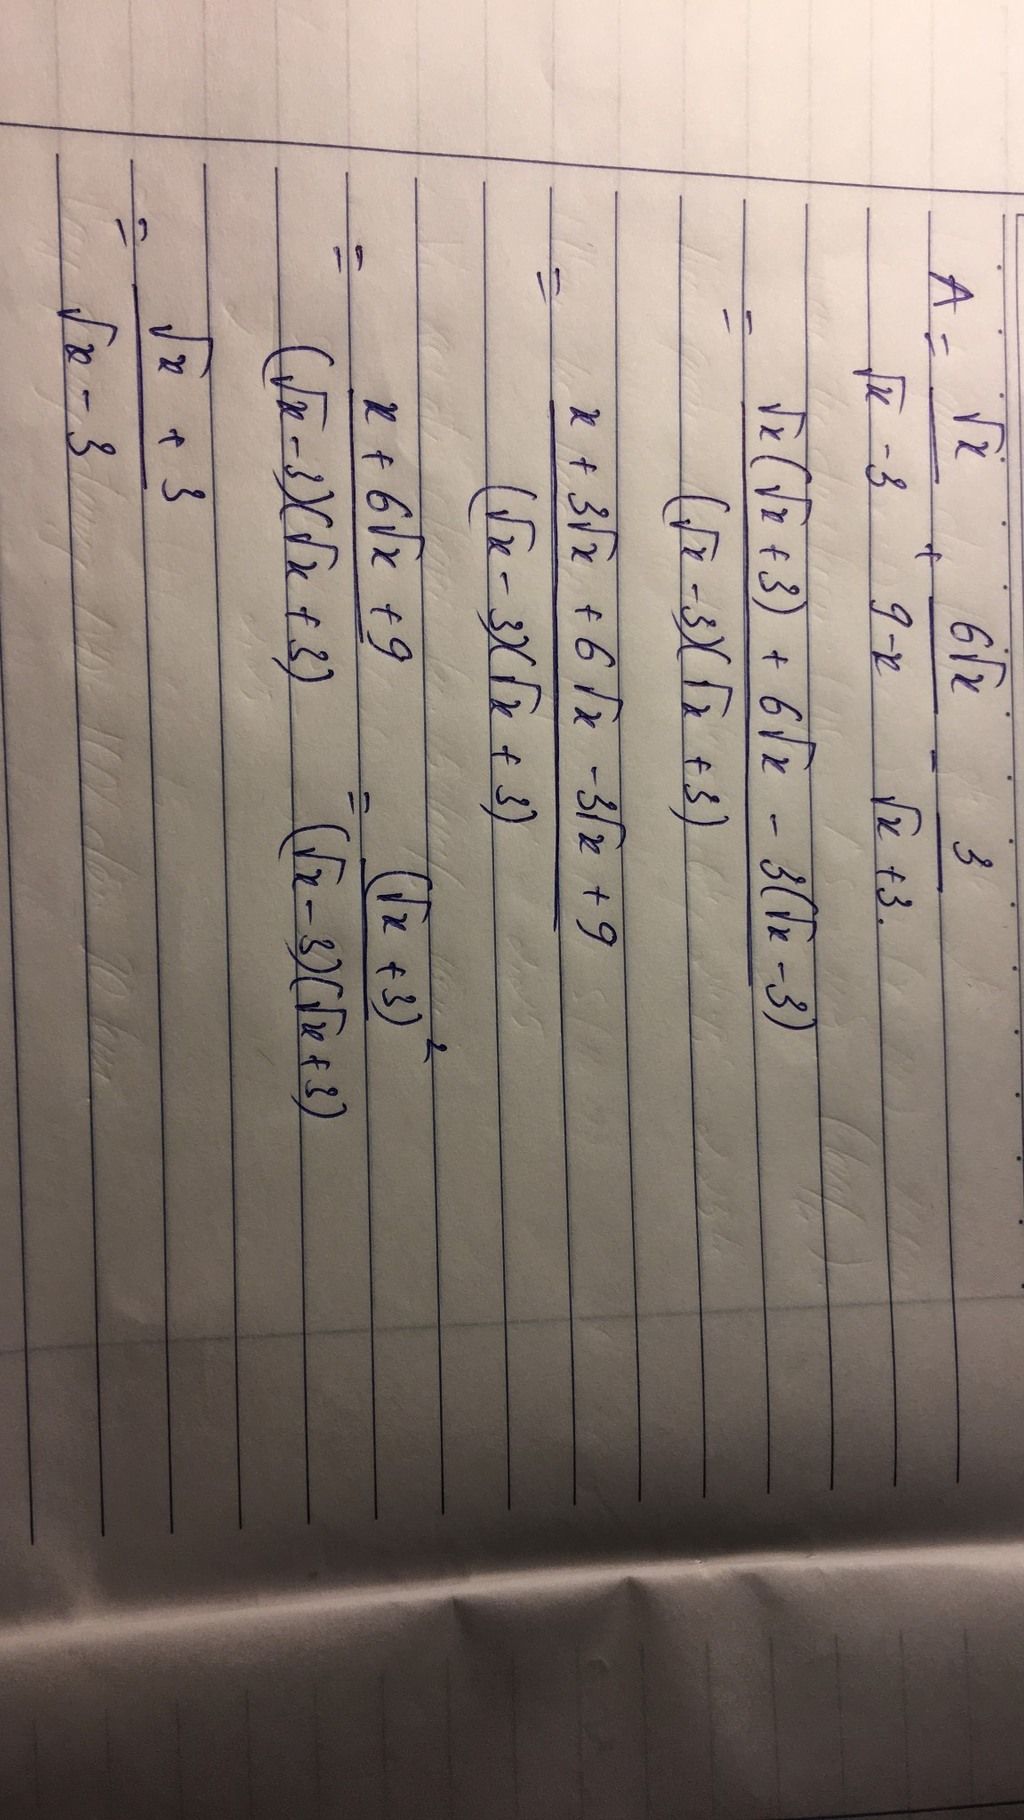 A = √x / (√x - 3) + 6√x / (9-x) - 3 / (√x + 3).
= (√x(√x + 3) + 6√x - 3(√x - 3)) / ((√x - 3)(√x + 3))
= (x + 3√x + 6√x - 3√x + 9) / ((√x - 3)(√x + 3))
= (x + 6√x + 9) / ((√x - 3)(√x + 3)) = (√x + 3)² / ((√x - 3)(√x + 3))
= (√x + 3) / (√x - 3)